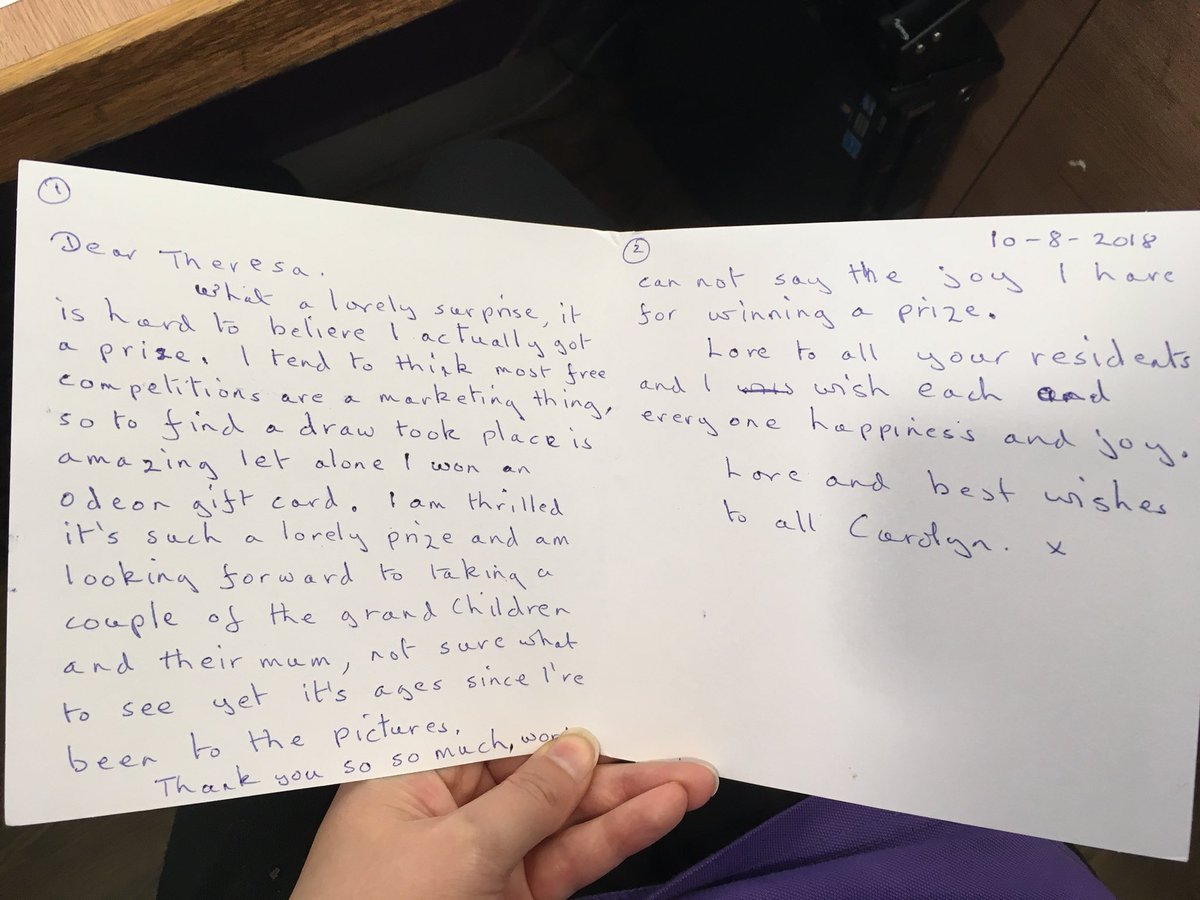 1
Dear Theresa.
What a lovely surprise, it
is hard to believe I actually got
a prize. I tend to think most free
competitions are a marketing thing,
so to find a draw took place is
amazing let alone I won an
odeon gift card. I am thrilled
it's such a lovely prize and am
looking forward to taking a
couple of the grand children
and their mum, not sure what
to see yet it's ages since I've
been to the pictures.
Thank you so so much,
2
10-8-2018
can not say the joy I have
for winning a prize.
Love to all your residents
and I wish each and
every one happiness and joy.
Love and best wishes
to all Carolyn. x